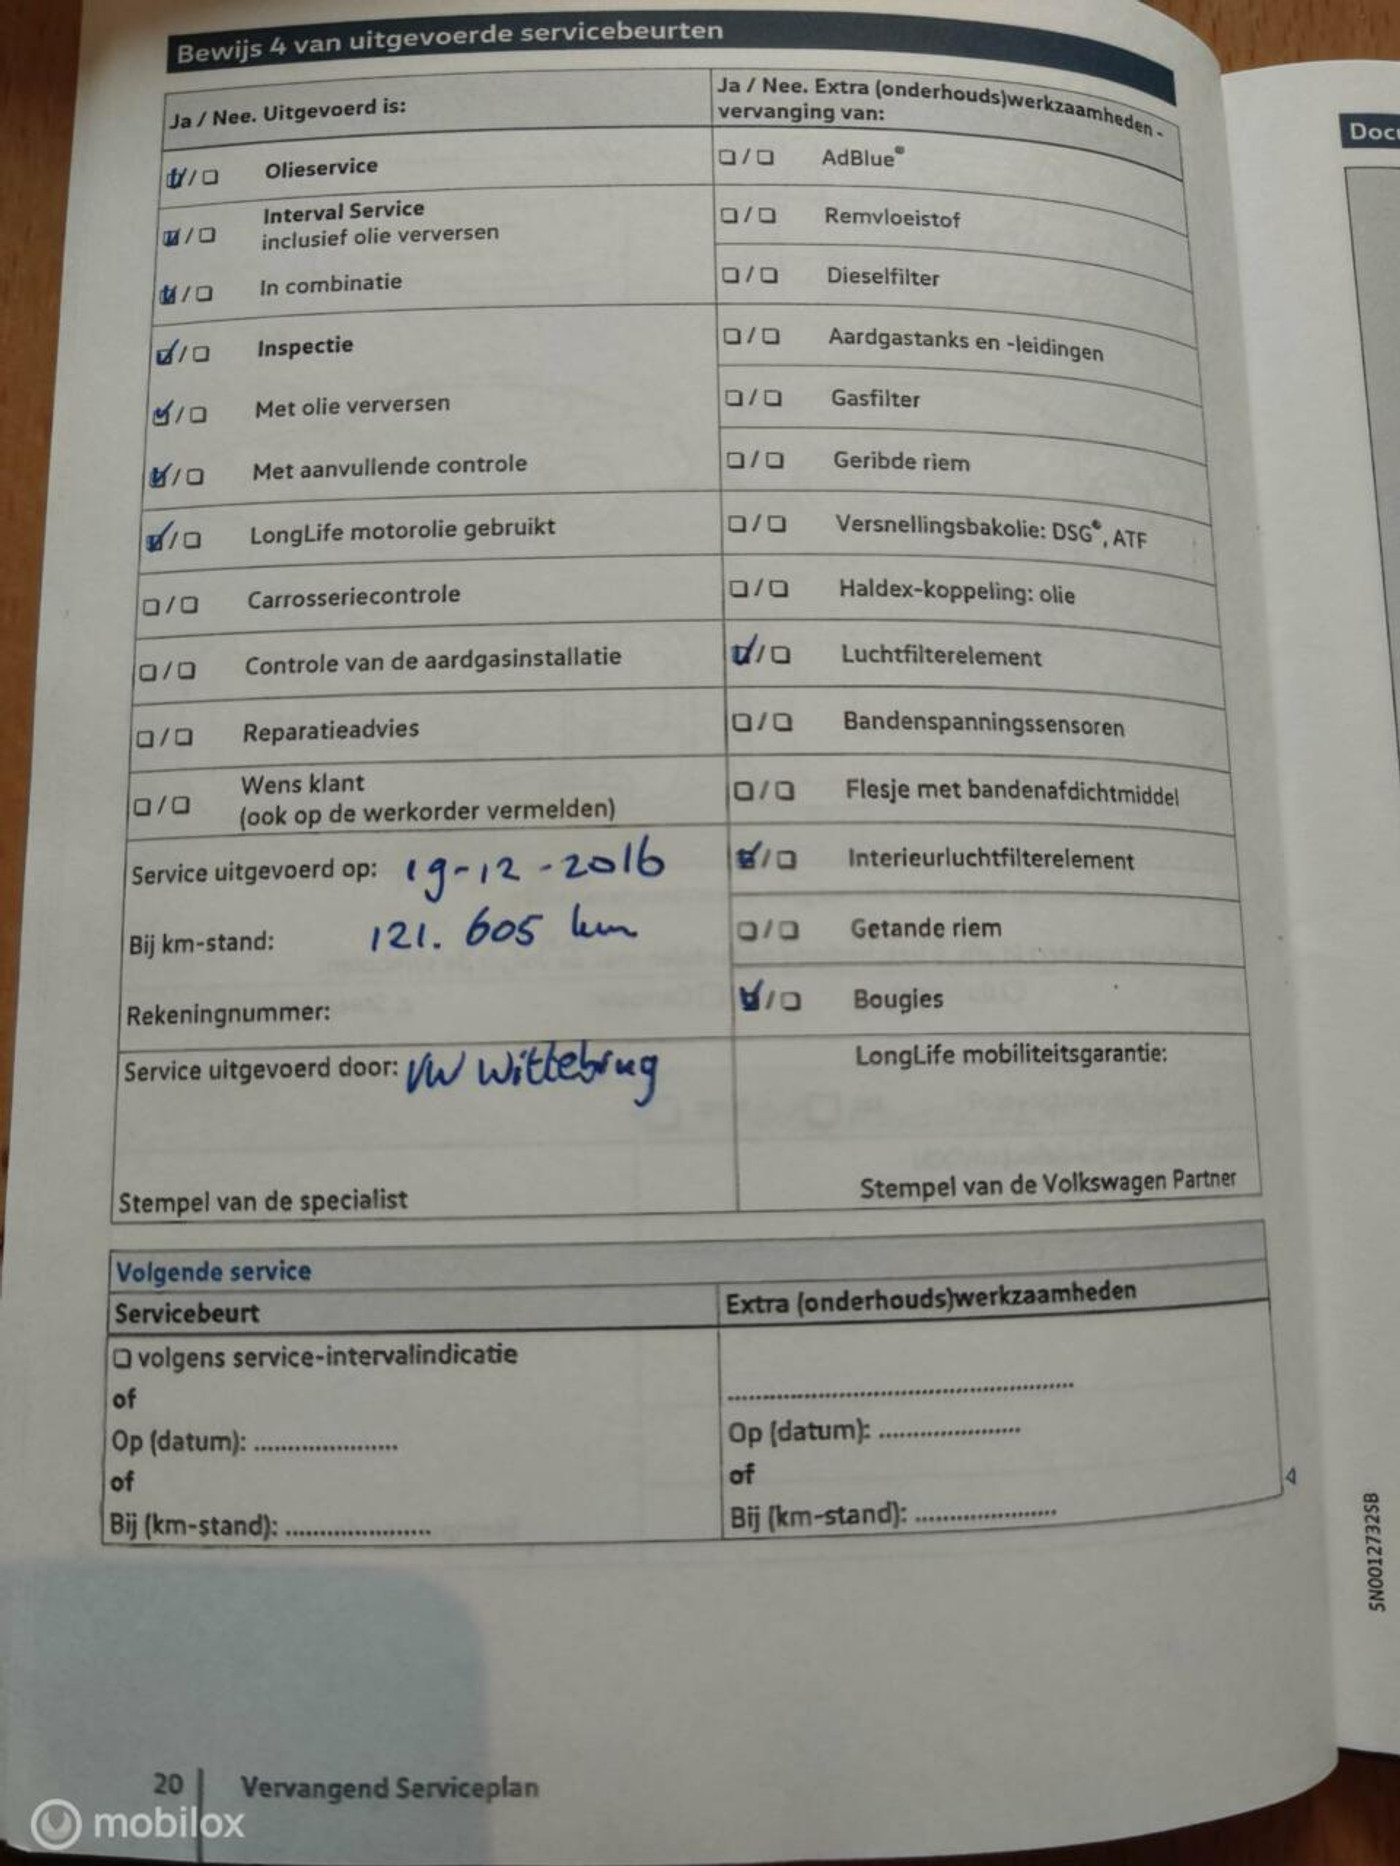 Bewijs 4 van uitgevoerde servicebeurten
Ja / Nee. Uitgevoerd is:
☑/☐ Olieservice
☑/☐ Interval Service
inclusief olie verversen
☑/☐ In combinatie
☑/☐ Inspectie
☑/☐ Met olie verversen
☑/☐ Met aanvullende controle
☑/☐ LongLife motorolie gebruikt
☐/☐ Carrosseriecontrole
☐/☐ Controle van de aardgasinstallatie
☐/☐ Reparatieadvies
☐/☐ Wens klant
(ook op de werkorder vermelden)
Service uitgevoerd op: 19-12-2016
Bij km-stand: 121.605 km
Rekeningnummer:
Service uitgevoerd door: VW Wittebrug
Stempel van de specialist
Ja / Nee. Extra (onderhouds)werkzaamheden -
vervanging van:
☐/☐ AdBlue®
☐/☐ Remvloeistof
☐/☐ Dieselfilter
☐/☐ Aardgastanks en -leidingen
☐/☐ Gasfilter
☐/☐ Geribde riem
☐/☐ Versnellingsbakolie: DSG®, ATF
☐/☐ Haldex-koppeling: olie
☑/☐ Luchtfilterelement
☐/☐ Bandenspanningssensoren
☐/☐ Flesje met bandenafdichtmiddel
☑/☐ Interieurluchtfilterelement
☐/☐ Getande riem
☑/☐ Bougies
LongLife mobiliteitsgarantie:
Stempel van de Volkswagen Partner
Volgende service
Servicebeurt
☐ volgens service-intervalindicatie
of
Op (datum): .....................
of
Bij (km-stand): .....................
Extra (onderhouds)werkzaamheden
..................................................
Op (datum): .....................
of
Bij (km-stand): .....................
20 | Vervangend Serviceplan
mobilox
5N0012732SB